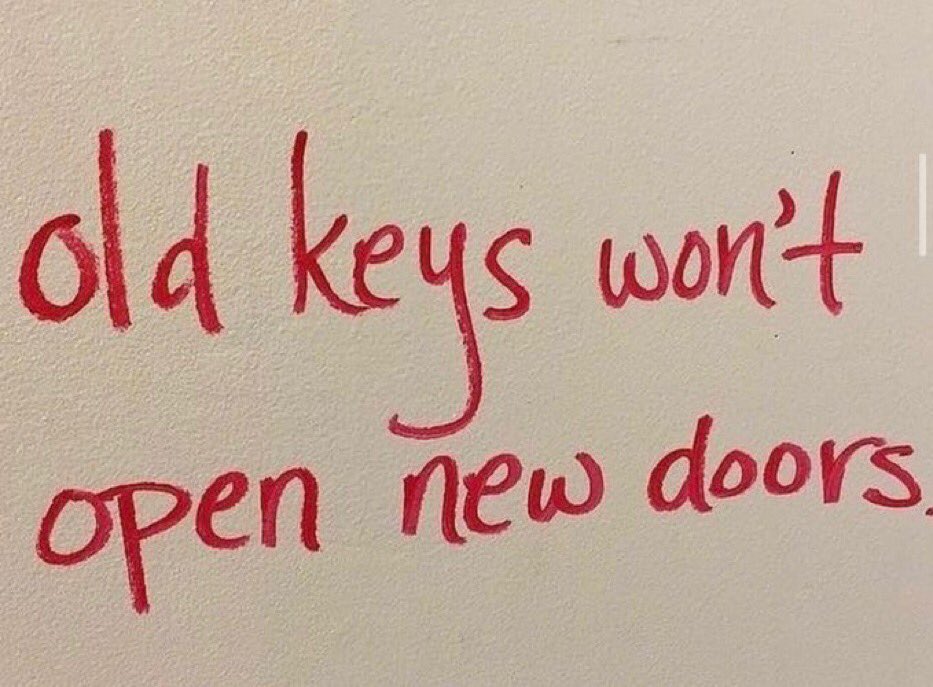 old keys won't
open new doors.